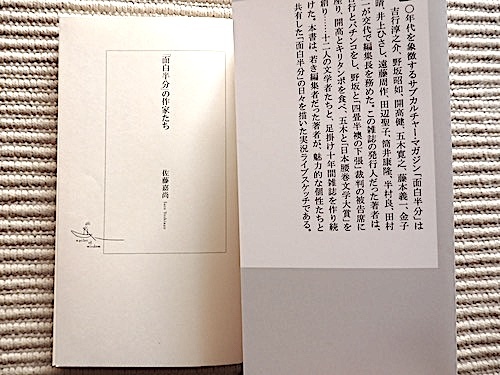 「面白半分」の作家たち
佐藤嘉尚
Sato Yoshinao
〇年代を象徴するサブカルチャー・マガジン「面白半分」は
吉行淳之介、野坂昭如、開高健、五木寛之、藤本義一、金子
晴、井上ひさし、遠藤周作、田辺聖子、筒井康隆、半村良、田村
一が交代で編集長を務めた。この雑誌の発行人だった著者は、
行とパチンコをし、野坂と「四畳半襖の下張」裁判の被告席に
座り、開高とキリタンポを食べ、五木と「日本腰巻文学大賞」を
創り……十二人の文学者たちと、足掛け十年間雑誌を作り続
けた。本書は、若き編集者だった著者が、魅力的な個性たちと
共有した「面白半分」の日々を描いた実況ライブスケッチである。